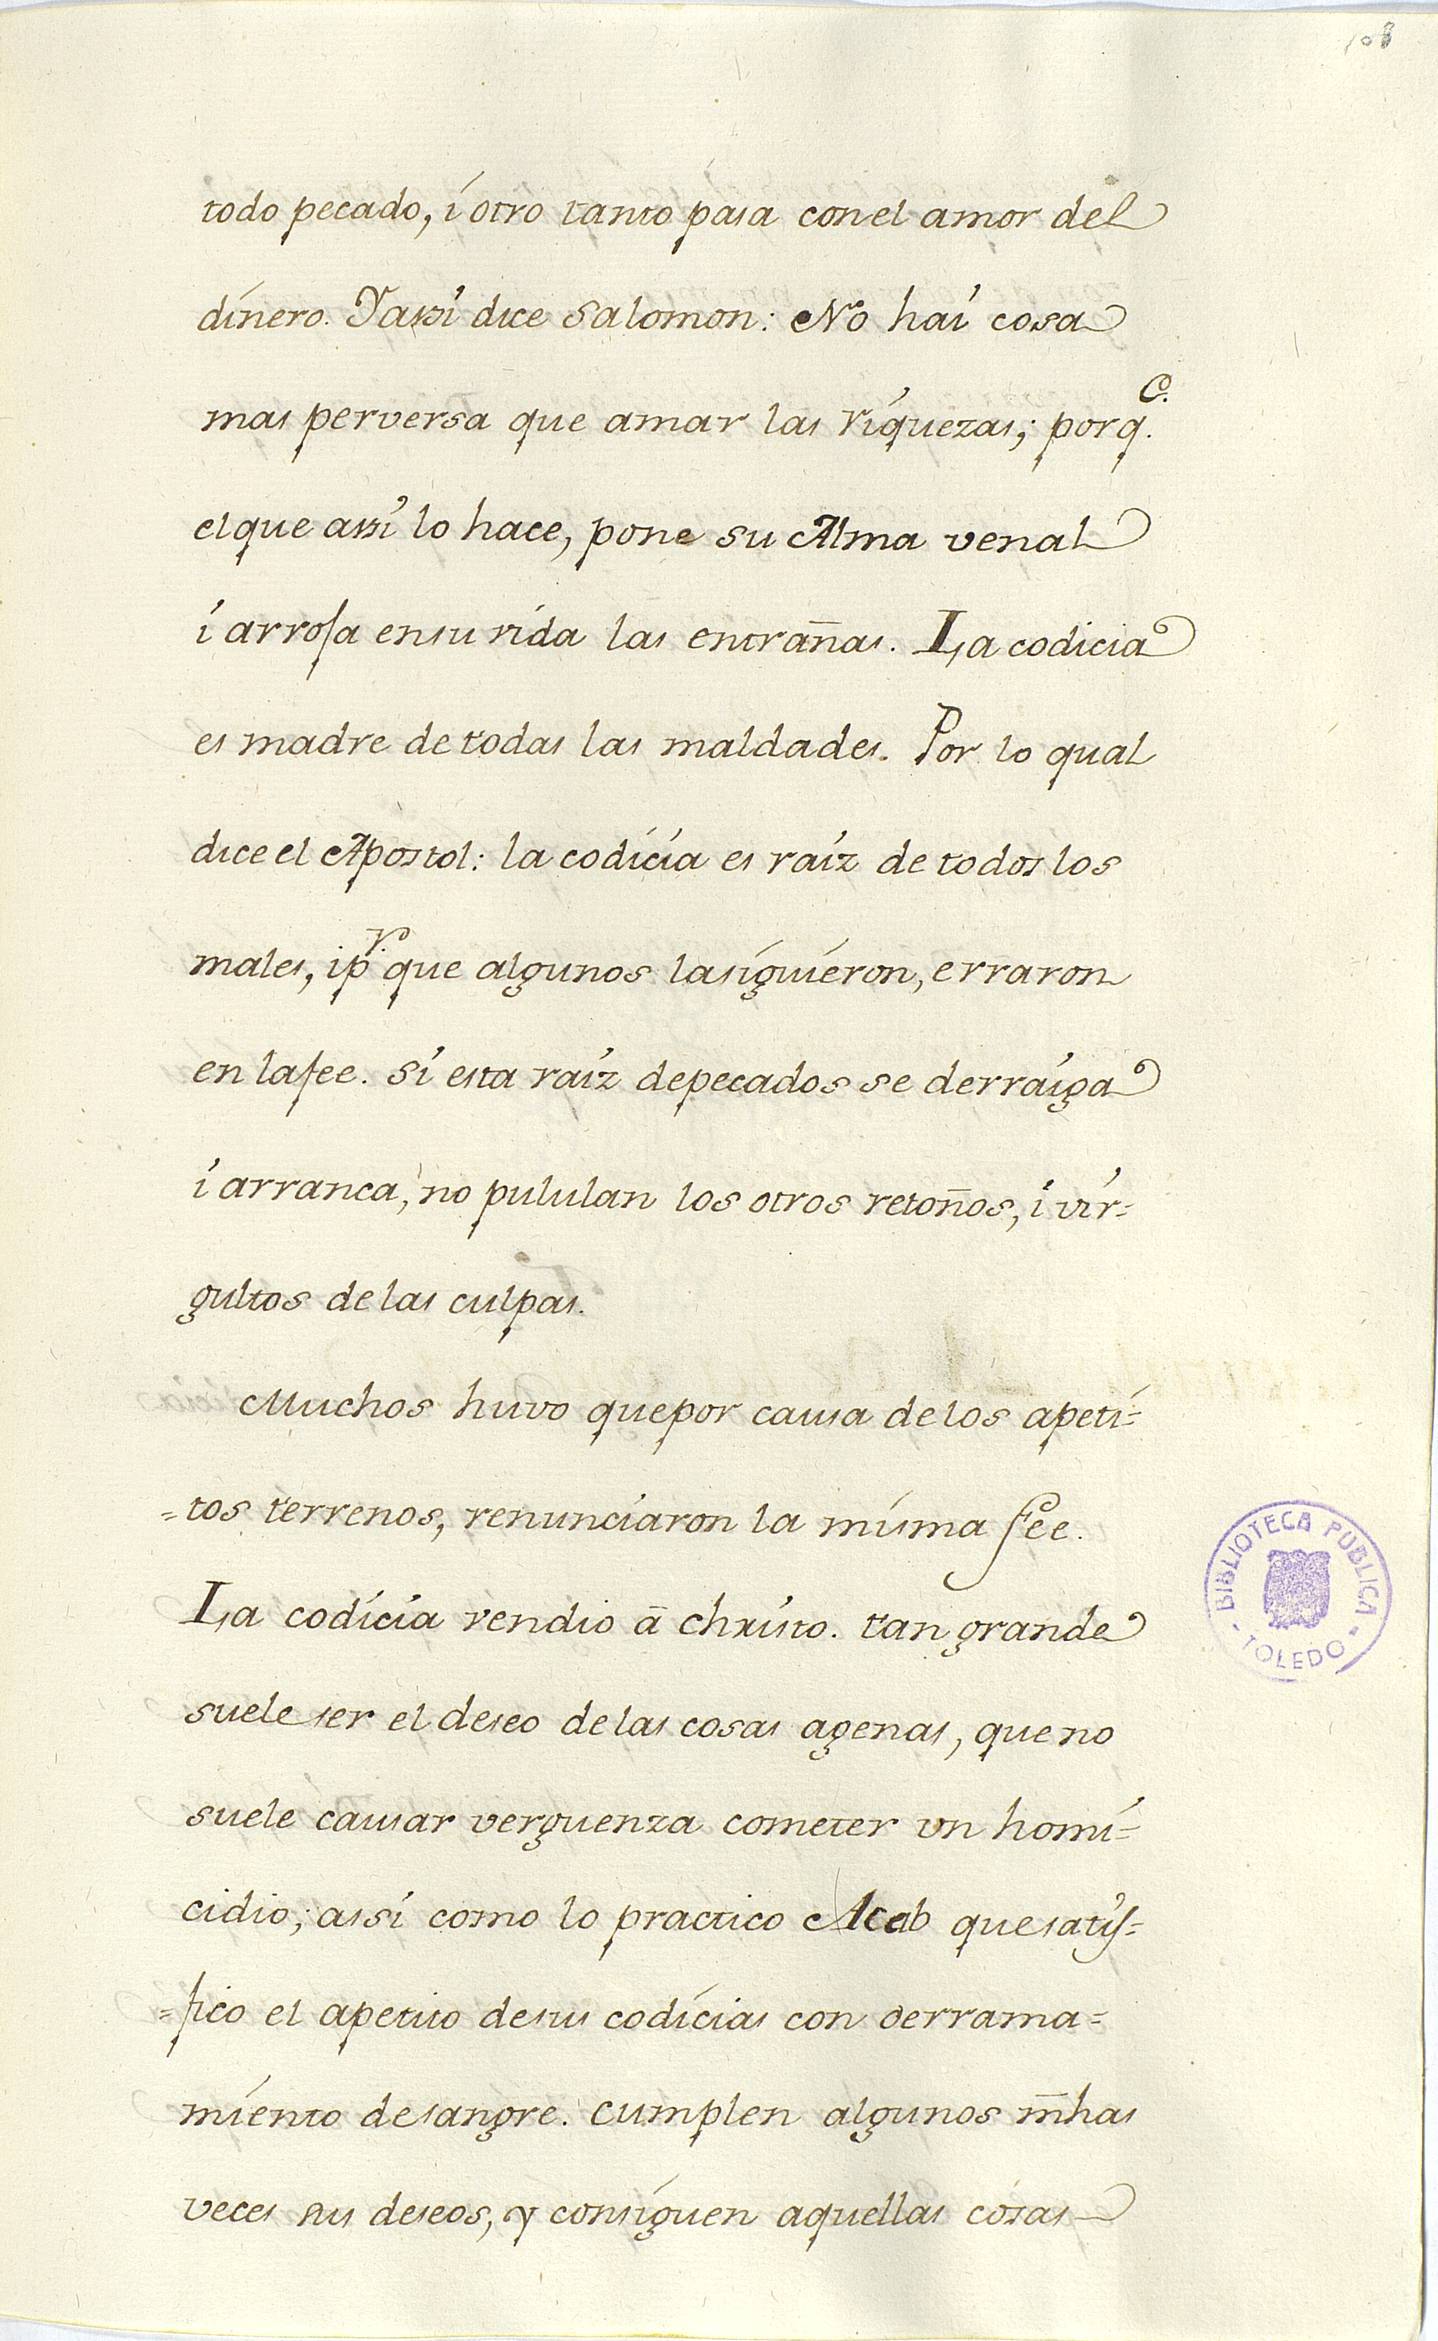 108
todo pecado, i otro tanto pasa con el amor del
dinero. Y assi dice Salomon: No hai cosa
mas perversa que amar las riquezas; porq.e
el que assi lo hace, pone su Alma venal
i arroja en su vida las entrañas. La codicia
es madre de todas las maldades. Por lo qual
dice el Apostol: la codicia es raiz de todos los
males, i p.r que algunos la siguieron, erraron
en la fee. Si esta raiz de pecados se derraiga
i arranca, no pululan los otros retoños, i vir=
gultos de las culpas.
Muchos huvo que por causa de los apeti=
=tos terrenos, renunciaron la misma fee.
La codicia vendio ā Christo. tan grande
suele ser el deseo de las cosas agenas, que no
suele causar verguenza cometer un homi=
cidio; assi como lo practico Acab que satis=
=fico el apetito de sus codicias con derrama=
miento de sangre. Cumplen algunos m̄has
veces sus deseos, y consiguen aquellas cosas
BIBLIOTECA PUBLICA
- TOLEDO -